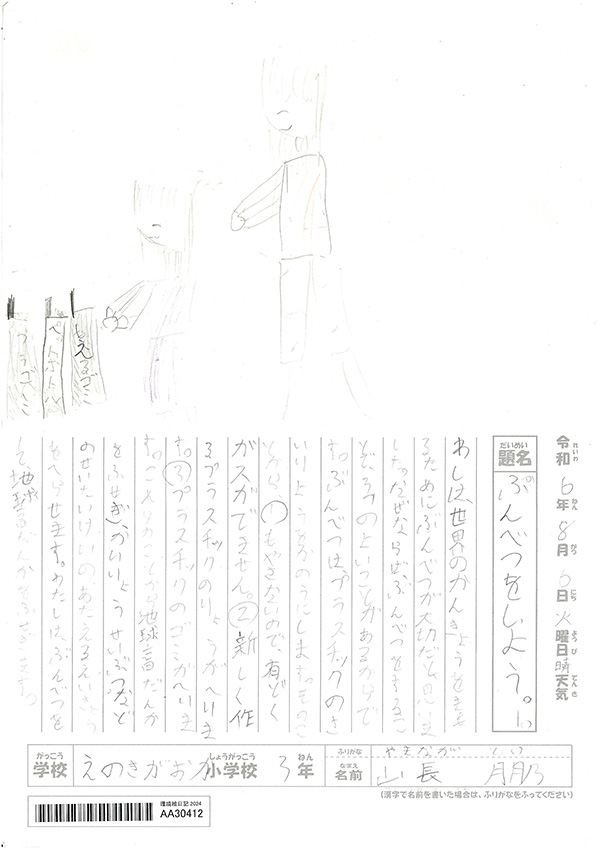 もえるゴミ
ペットボトル
プラゴミ
令和6年8月6日火曜日晴天気
れいわ ねん がつ にち ようび てんき
だいめい
題名
ぷんべつをしよう。
わしは、世界のかんきょうをまも
るためにぶんべつが大切だと思いま
した。なぜならば、ぶんべつをするこ
とで、3つのよいことがあるからで
す。ぶんべつは、プラスチックのさ
いりようをかのうにします。そのこ
とから、①もやさないので、有どく
ガスがでません。②新しく作
るプラスチックのりょうがへりま
す。③プラスチックのゴミがへりま
す。これらのことから地球音だんか
をふせぎ、かいりょうせいぶつなど
のせいたいけいのあたえるえいきょう
をへらせます。わたしは、ぶんべつを
して、地球おんだんかをふせぎます。
がっこう
学校
えのきがおか小学校 3年
しょうがっこう ねん
ふりがな
なまえ
名前
やまなが
山長
(漢字で名前を書いた場合は、ふりがなをふってください)
環境絵日記2024
AA30412